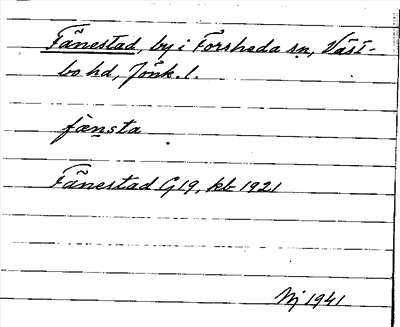 Fånestad, by i Forsheda sn, Väst-
bo hd, Jönk. l.
fænsta
Fånestad G19, kb 1921
Nj 1941